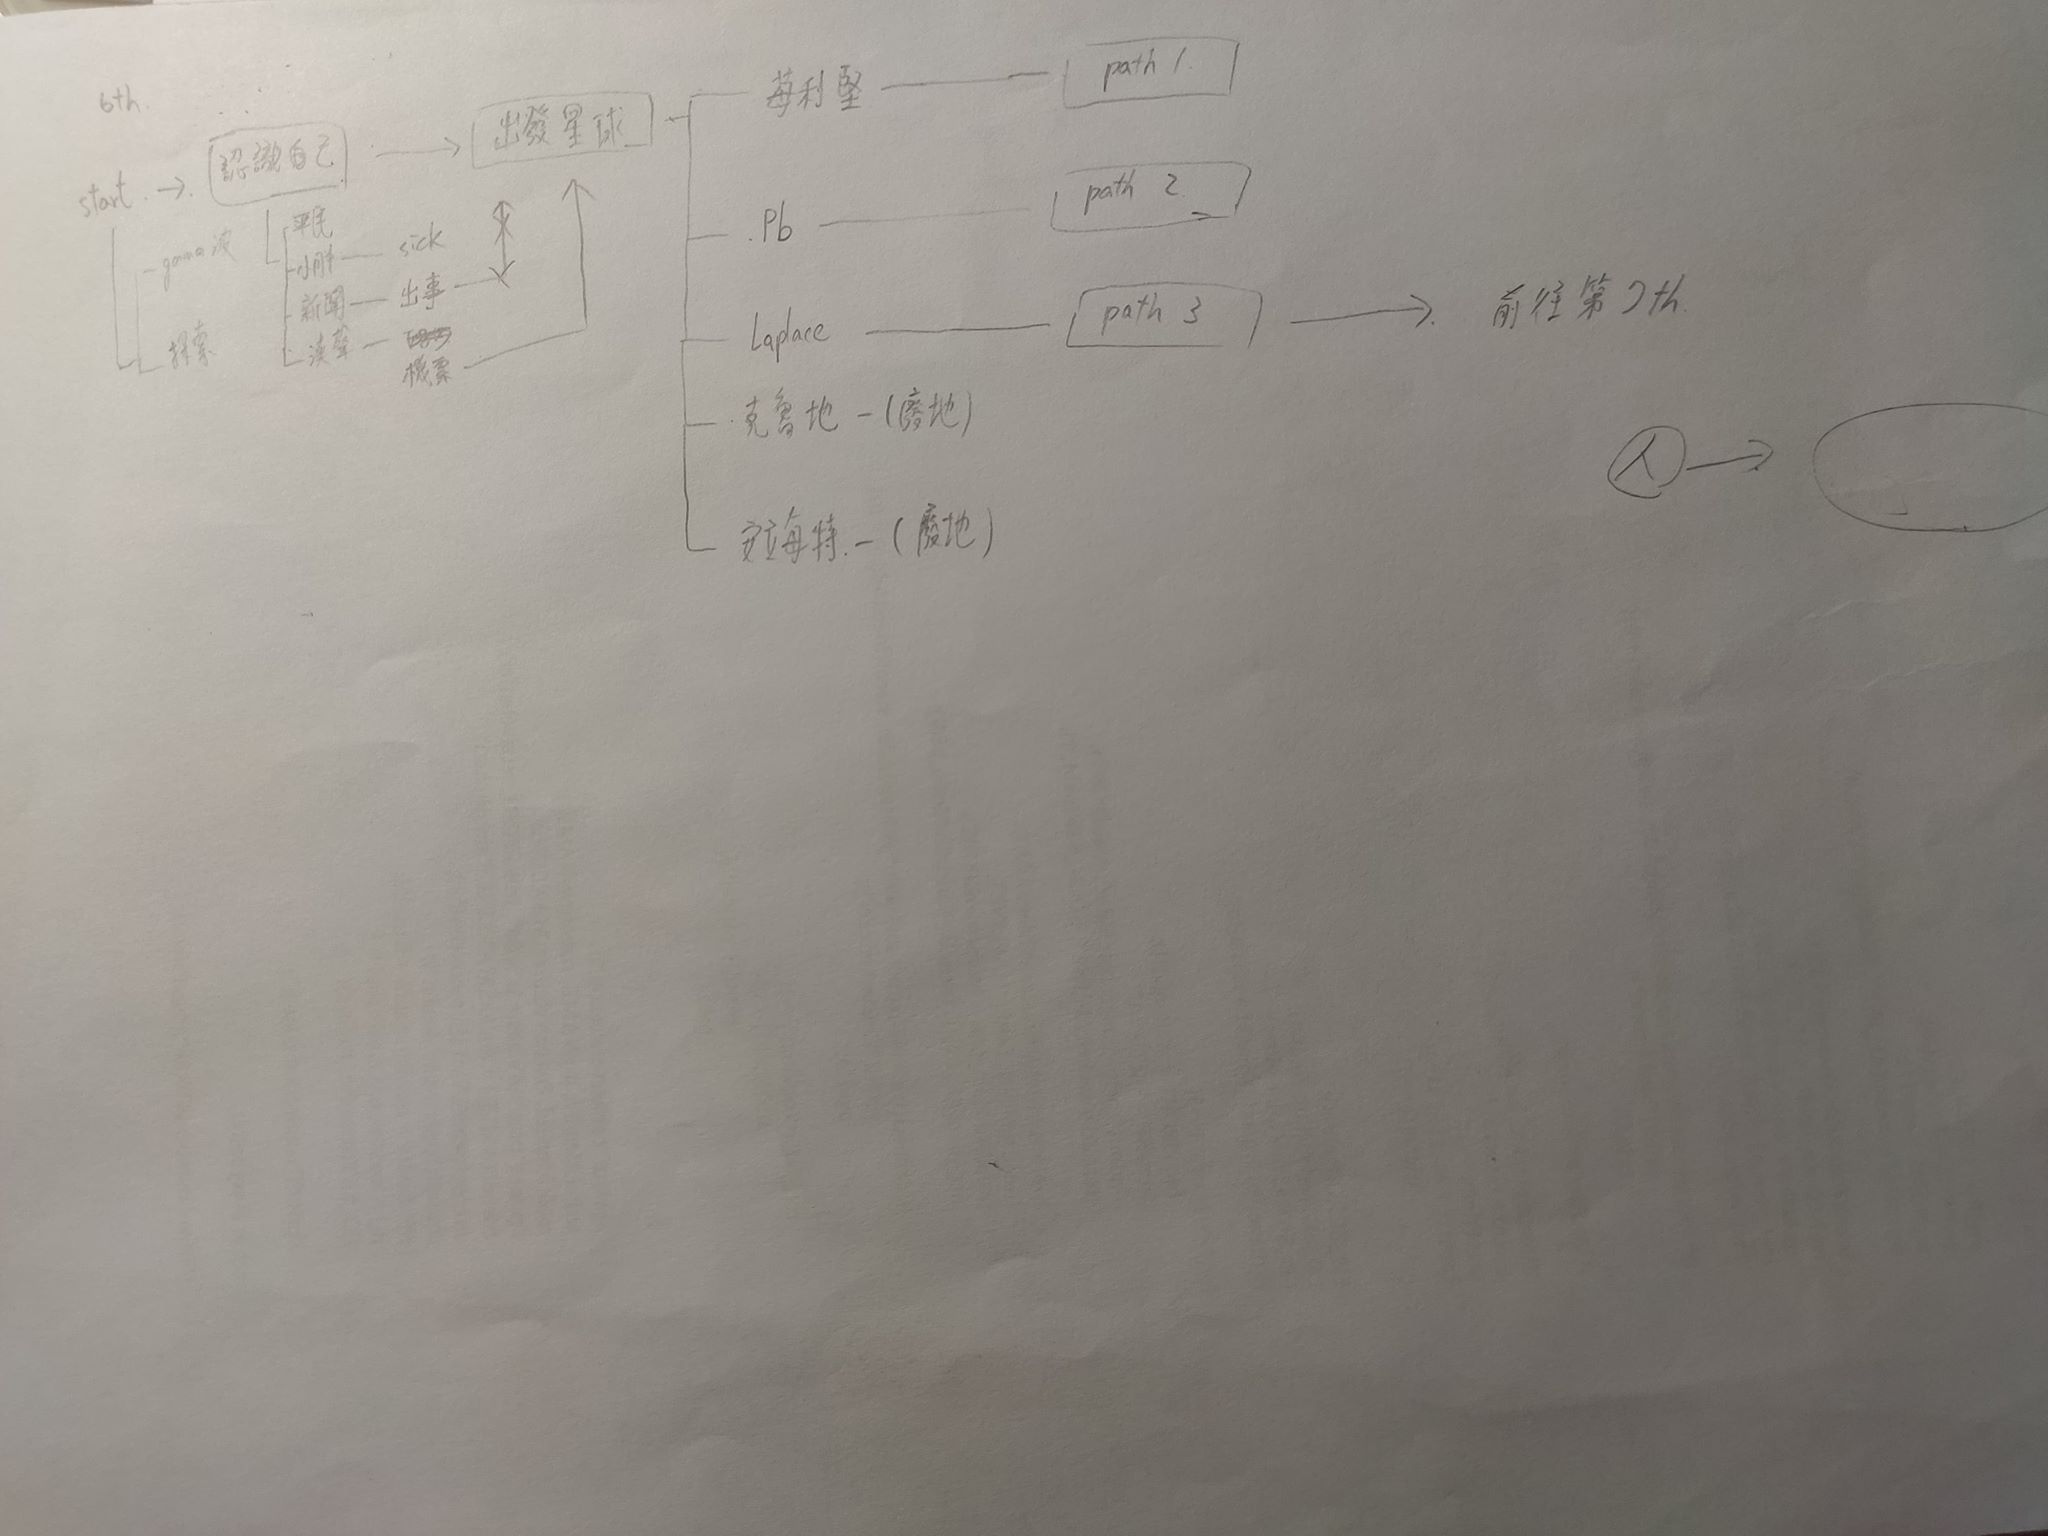 6th.
start → 認識自己 → 出發星球
gama波
探索
平民
小胖 — sick
新聞 — 出事
漢聲
機票
莓利堅 — path 1.
.Pb — path 2
Laplace — path 3 → 前往第7th.
克魯地 - (廢地)
海特. - (廢地)
人 →